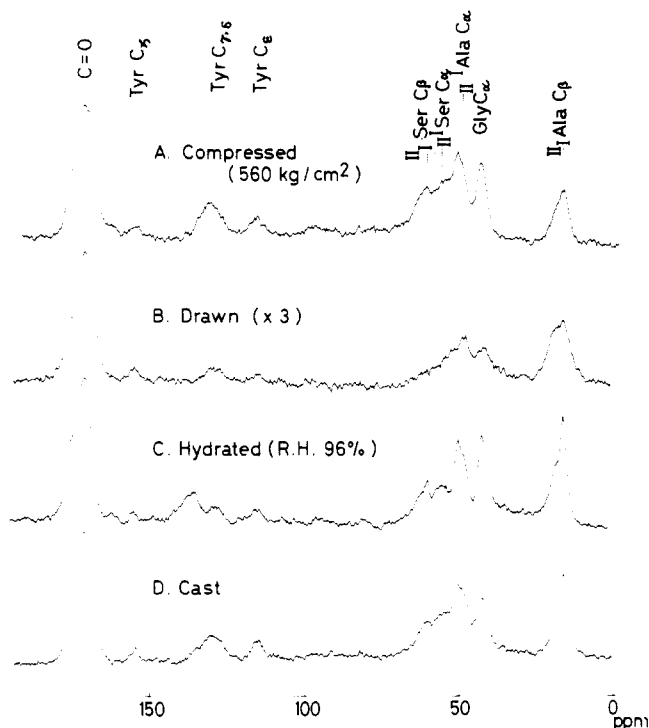 C=O
Tyr Cζ
Tyr Cγ,δ
Tyr Cε
II I Ser Cβ
II I Ser Cα
II I Ala Cα
GlyCα
II I Ala Cβ
A. Compressed
(560 kg/cm2)
B. Drawn (x 3)
C. Hydrated (R.H. 96%)
D. Cast
150 100 50 0
ppm